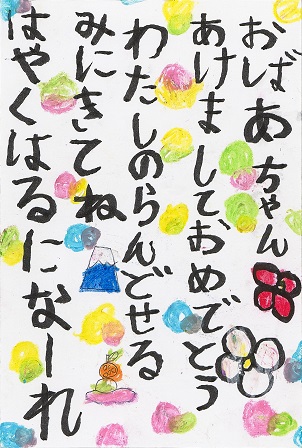 おばあちゃん
あけましておめでとう
わたしのらんどせる
みにきてね
はやくはるになーれ